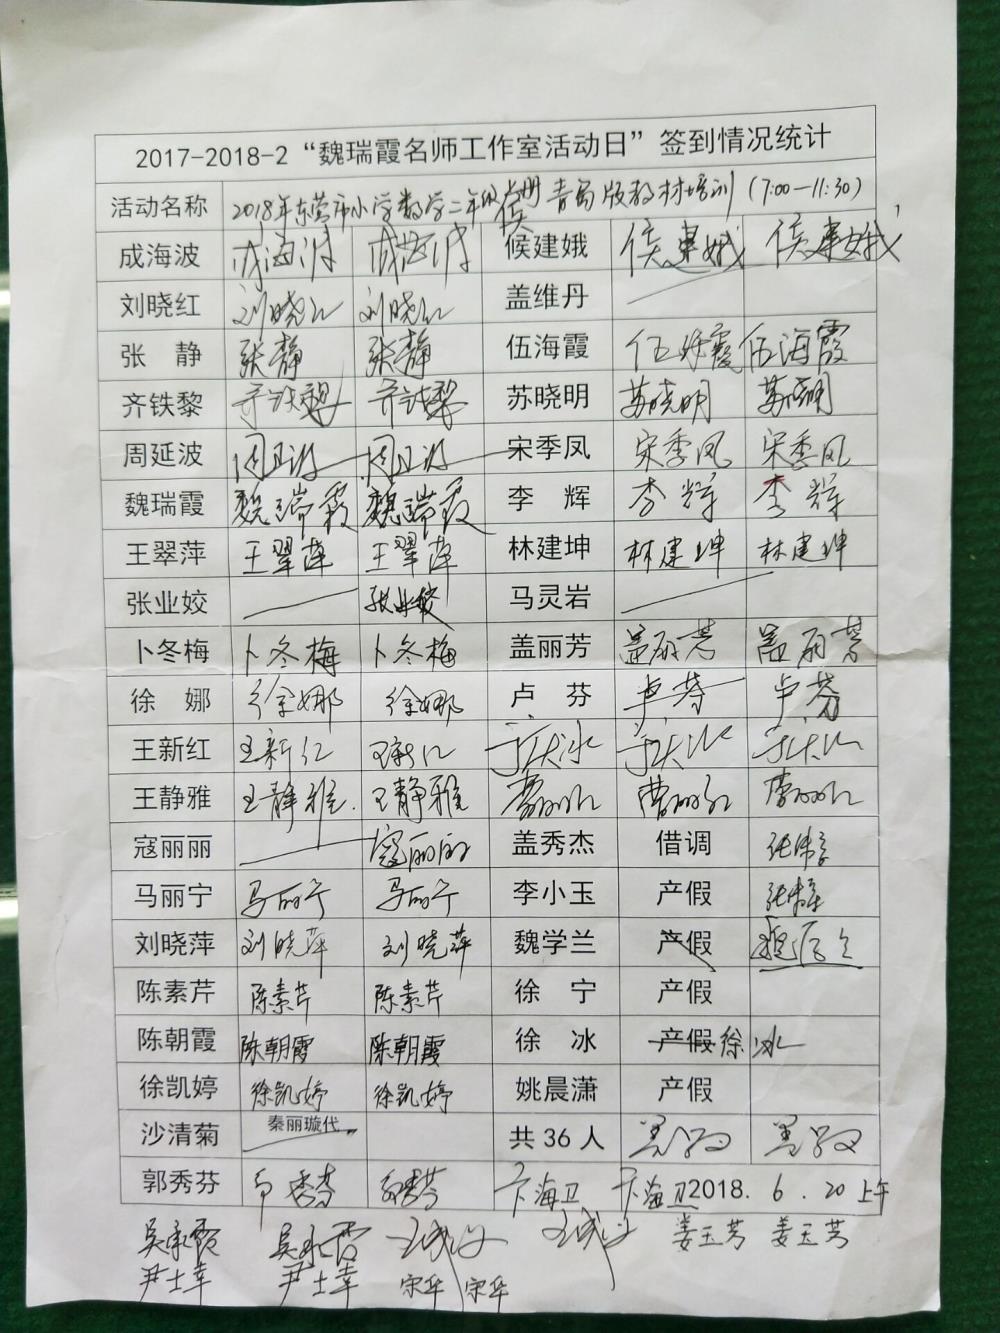 2017-2018-2“魏瑞霞名师工作室活动日”签到情况统计
活动名称 2018年东营市小学数学二年级上册青岛版教材培训（7:00—11:30）
侯
成海波 成海波 成海波 候建娥 侯建娥 侯建娥
刘晓红 刘晓红 刘晓红 盖维丹
张 静 张静 张静 伍海霞 伍海霞 伍海霞
齐铁黎 齐铁黎 齐铁黎 苏晓明 苏晓明 苏晓明
周延波 周延波 周延波 宋季凤 宋季凤 宋季凤
魏瑞霞 魏瑞霞 魏瑞霞 李 辉 李辉 李辉
王翠萍 王翠萍 王翠萍 林建坤 林建坤 林建坤
张业姣 张业姣 马灵岩
卜冬梅 卜冬梅 卜冬梅 盖丽芳 盖丽芳 盖丽芳
徐 娜 徐娜 徐娜 卢 芬 卢芬 卢芬
王新红 王新红 王新红 于庆水 于庆水 于庆水
王静雅 王静雅 王静雅 曹丽红 曹丽红 曹丽红
寇丽丽 寇丽丽 盖秀杰 借调
马丽宁 马丽宁 马丽宁 李小玉 产假
刘晓萍 刘晓萍 刘晓萍 魏学兰 产假 魏学兰
陈素芹 陈素芹 陈素芹 徐 宁 产假
陈朝霞 陈朝霞 陈朝霞 徐 冰 产假 徐冰
徐凯婷 徐凯婷 徐凯婷 姚晨潇 产假
沙清菊 秦丽璇代 共36人
郭秀芬 郭秀芬 郭秀芬 卞海卫 卞海卫 2018.6.20上午
吴永霞 吴永霞 姜玉芳 姜玉芳
尹士幸 尹士幸 宋华 宋华